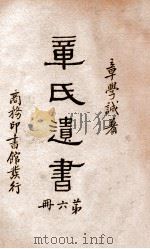 章學誠著
章氏遺書
第六冊
商務印書館發行